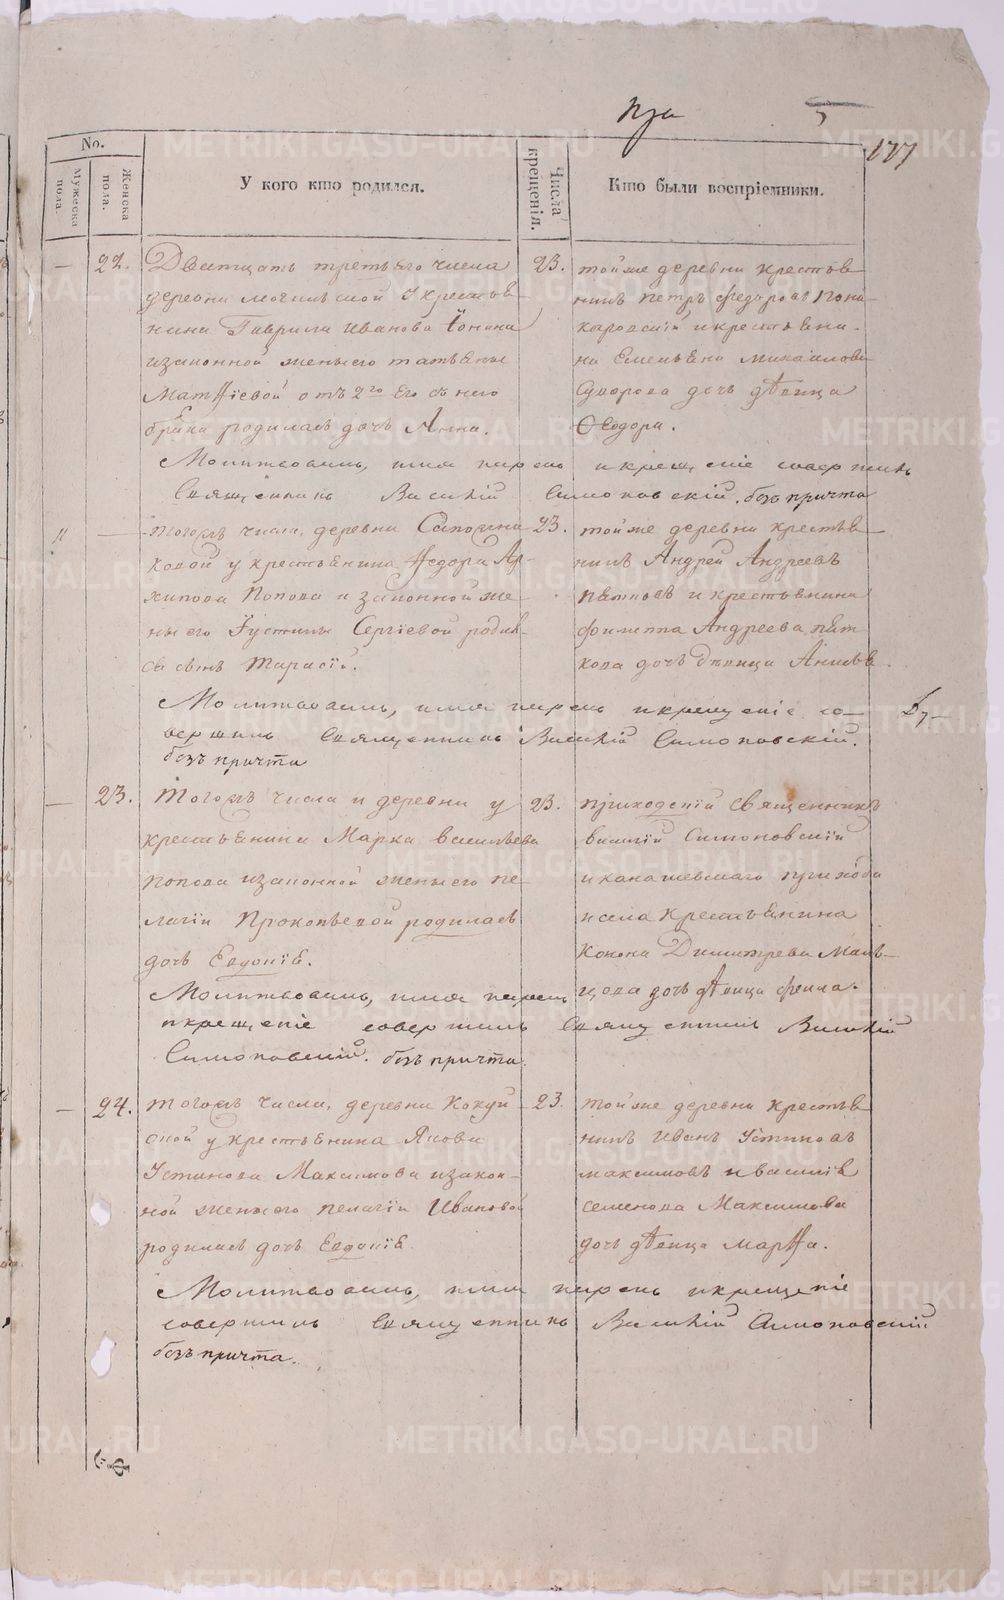 177
No.
Мужеска пола.
Женска пола.
У кого кто родился.
Числа крещенія.
Кто были воспріемники.
22.
Дватцать третьяго числа
деревни у крестья
нина Гаврила Иванова Іонина
изаконной жены его татьяны
Матѳіевой отъ 2го его съ нею
брака родилась дочь Анна.
23.
тойже деревни крестья
нинъ петръ федоровъ Пона
икрестьяни
на Емельяна михаилова
Суворова дочь дѣвица
Ѳеодора.
Молитвовалъ, имя нарекъ икрещеніе совершилъ
Священникъ Василій Симоновскій. безъ причта
11
тогожъ числа, деревни Сапогина
ковой у крестьянина Федора Ар-
хипова Попова и законной же
ны его Іустины Сергіевой родил
ся сынъ Тарасій.
23.
тойже деревни крестья
нинъ Андрей Андреевъ
Пятковъ и крестьянина
филиппа Андреева пят
кова дочь дѣвица Анисья.
Молитвовалъ, имя нарекъ икрещеніе со-
вершилъ Священникъ Василій Симоновскій.
безъ причта
23.
Тогожъ числа и деревни у
крестьянина Марка васильева
Попова изаконной жены его пе
лагіи Прокопьевой родилась
дочь Евдокія.
23.
приходскій Священникъ
василій Симоновскій
иканашевскаго прихода
исела Крестьянина
Конона Димитрева Маль
цова дочь дѣвица фекла.
Молитвовалъ, имя нарекъ
икрещеніе совершилъ Священникъ Василій
Симоновскій. безъ причта.
24.
тогожъ числа, деревни Кокуй
ской у крестьянина Якова
Устинова Максимова изакон-
ной жены его пелагіи Ивановой
родилась дочь Евдокія.
23.
тойже деревни крестья
нинъ Иванъ Устиновъ
максимовъ ивасилія
семенова Максимова
дочь дѣвица марѳа.
Молитвовалъ, имя нарекъ икрещеніе
совершилъ Священникъ Василій Симоновскій
безъ причта.
METRIKI.GASO-URAL.RU